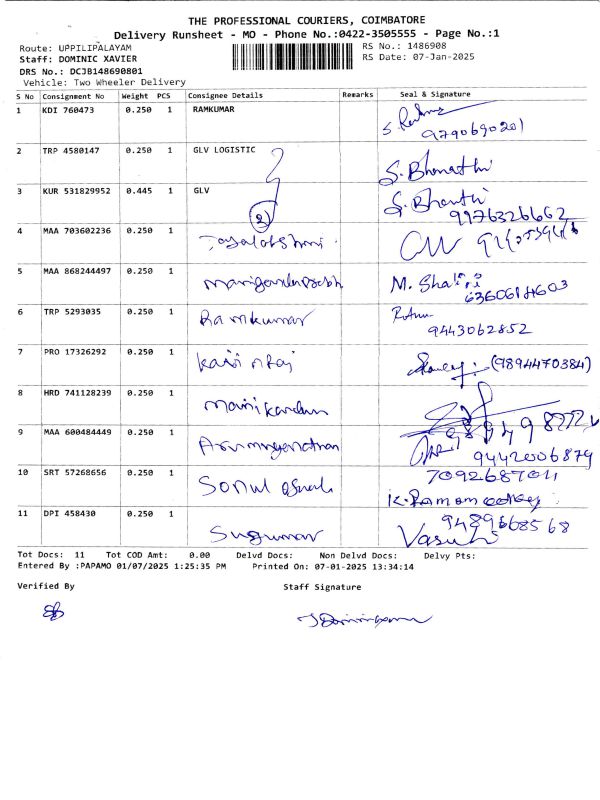 THE PROFESSIONAL COURIERS, COIMBATORE
Delivery Runsheet - MO - Phone No.:0422-3505555 - Page No.:1
Route: UPPILIPALAYAM RS No.: 1486908
Staff: DOMINIC XAVIER RS Date: 07-Jan-2025
DRS No.: DCJB148690801
Vehicle: Two Wheeler Delivery
S No Consignment No Weight PCS Consignee Details Remarks Seal & Signature
1 KDI 760473 0.250 1 RAMKUMAR
9790690201
2 TRP 4580147 0.250 1 GLV LOGISTIC
S. Bharathi
3 KUR 531829952 0.445 1 GLV S. Bharathi
2 9976326662
4 MAA 703602236 0.250 1
Jayalakshmi
5 MAA 868244497 0.250 1 M. Shalini
6360614603
6 TRP 5293035 0.250 1
Ramkumar 9443062852
7 PRO 17326292 0.250 1
(9894470384)
8 HRD 741128239 0.250 1
Manikandan
9 MAA 600484449 0.250 1
9442006879
10 SRT 57268656 0.250 1 7092687011
Sonul
11 DPI 458430 0.250 1 9489668568
Sugumar Vasuki
Tot Docs: 11 Tot COD Amt: 0.00 Delvd Docs: Non Delvd Docs: Delvy Pts:
Entered By :PAPAMO 01/07/2025 1:25:35 PM Printed On: 07-01-2025 13:34:14
Verified By Staff Signature